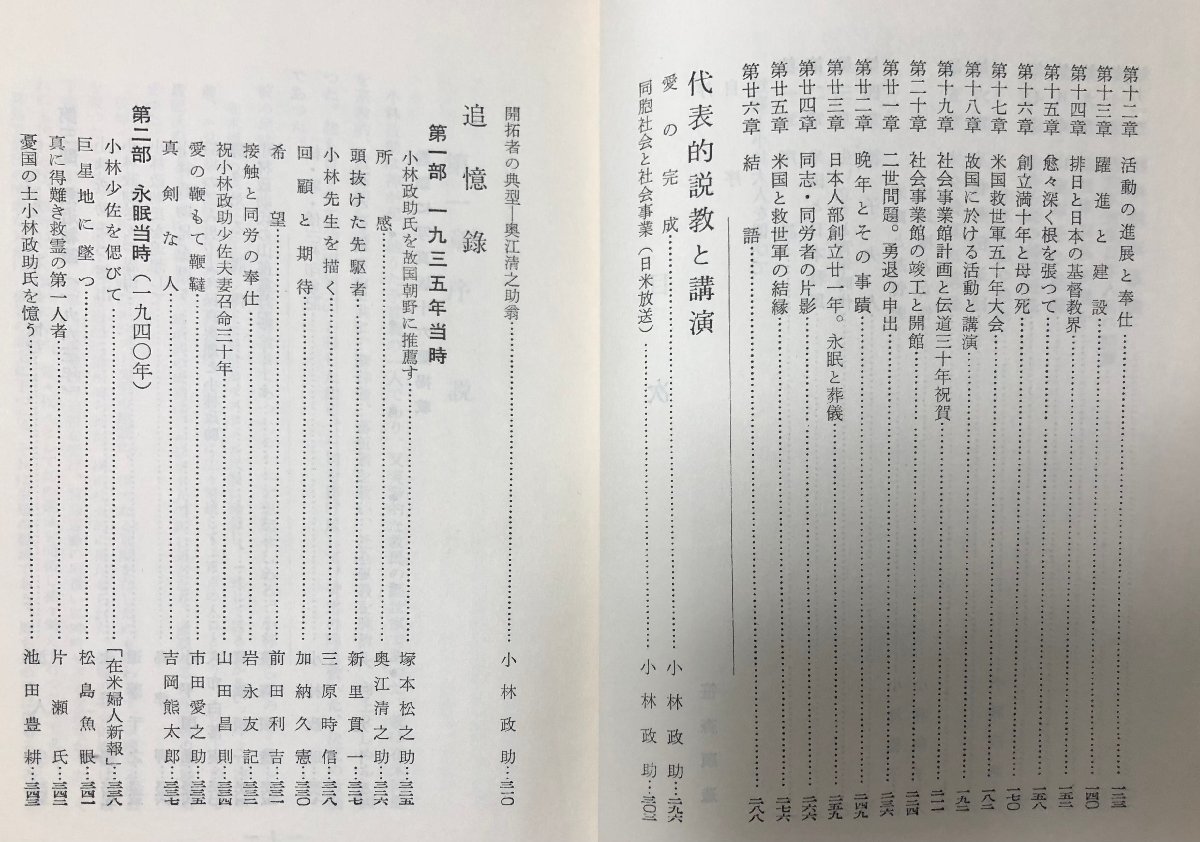 第十二章 活動の進展と奉仕……一二三
第十三章 躍進と建設……一四〇
第十四章 排日と日本の基督教界……一五二
第十五章 愈々深く根を張つて……一五八
第十六章 創立満十年と母の死……一七〇
第十七章 米国救世軍五十年大会……一八二
第十八章 故国に於ける活動と講演……一九二
第十九章 社会事業館計画と伝道三十年祝賀……二一一
第二十章 社会事業館の竣工と開館……二二四
第廿一章 二世問題。勇退の申出……二三六
第廿二章 晩年とその事蹟……二四九
第廿三章 日本人部創立廿一年。永眠と葬儀……二五九
第廿四章 同志・同労者の片影……二六六
第廿五章 米国と救世軍の結縁……二七六
第廿六章 結語……二八八
代表的説教と講演
愛の完成……小林政助…二九六
同胞社会と社会事業(日米放送)……小林政助…
開拓者の典型―奥江清之助翁……小林政助…三一〇
追憶錄
第一部 一九三五年当時
小林政助氏を故国朝野に推薦す……塚本松之助…三二五
所感……奥江清之助…三二六
頭抜けた先駆者……新里貫一…三二七
小林先生を描く……三原時信…三二八
回顧と期待……加納久憲…三三〇
希望……前田利吉…三三一
接触と同労の奉仕……岩永友記…
祝小林政助少佐夫妻召命三十年……山田昌則…三三四
愛の鞭もて鞭韃……市田愛之助…三三五
真剣な人……吉岡熊太郎…三三七
第二部 永眠当時(一九四〇年)
小林少佐を偲びて……「在米婦人新報」…三三八
巨星地に墜つ……松島魚眼…三四一
真に得難き救霊の第一人者……片瀬氏…三四二
憂国の士小林政助氏を憶う……池田豊耕…三四三